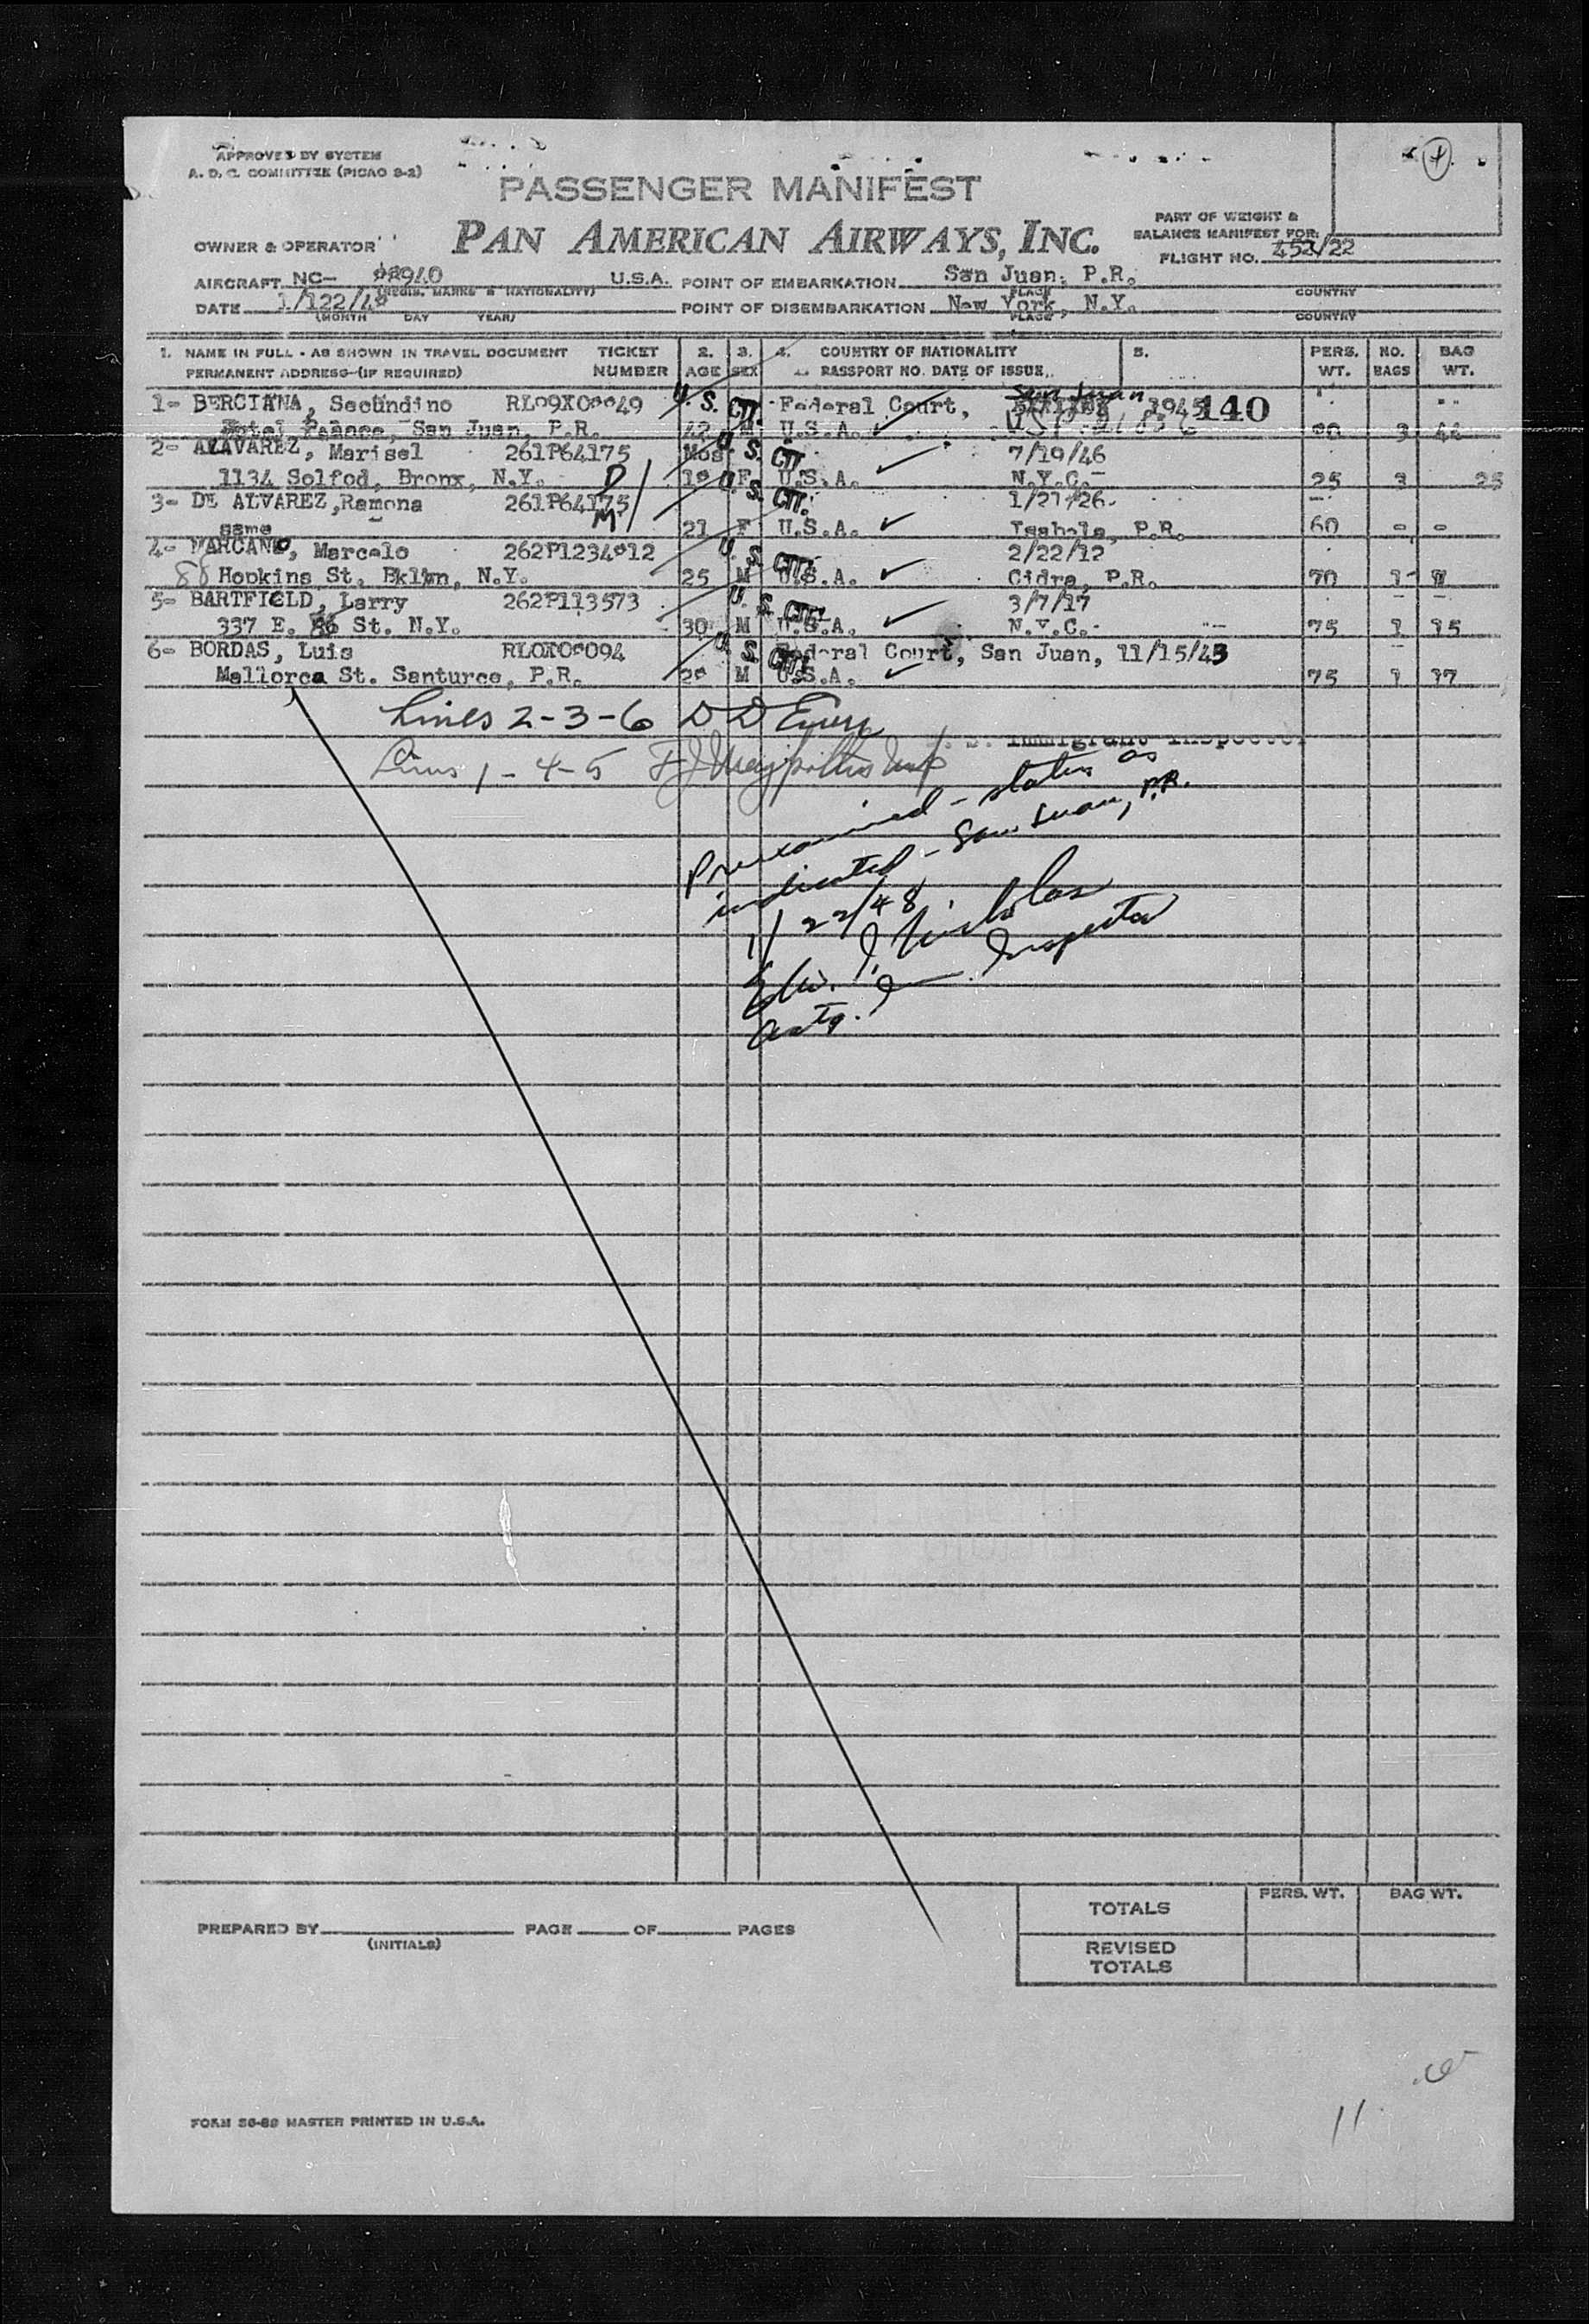 APPROVED BY SYSTEM
A. D. C. COMMITTEE (PICAO 8-2)
PASSENGER MANIFEST
OWNER & OPERATOR PAN AMERICAN AIRWAYS, INC.
PART OF WEIGHT &
BALANCE MANIFEST FOR:
FLIGHT NO. 452/22
AIRCRAFT NC- 88940 U.S.A. POINT OF EMBARKATION San Juan, P.R.
(REGIS. MARKS & NATIONALITY) PLACE COUNTRY
DATE 1/122/48 POINT OF DISEMBARKATION New York, N.Y.
(MONTH DAY YEAR) PLACE COUNTRY
1. NAME IN FULL - AS SHOWN IN TRAVEL DOCUMENT TICKET 2. 3. 4. COUNTRY OF NATIONALITY 5. PERS. NO. BAG
PERMANENT ADDRESS-(IF REQUIRED) NUMBER AGE SEX PASSPORT NO. DATE OF ISSUE WT. BAGS WT.
San Juan
1- BERCIANA, Secundino U. S. CTZ. Federal Court, 1945 140
Hotel Palace, San Juan, P.R. 42 M U.S.A. 3 44
2- ALAVAREZ, Marisel 261P64175 Mos U. S. CTZ. 7/19/46
1134 Solfod, Bronx, N.Y. D F U.S.A. N.Y.C. 25 3 25
3- DE ALVAREZ, Ramona 261P64175 U. S. CTZ. 1/27/26
same M 21 F U.S.A. Isabela, P.R. 60 - -
4- MARCANO, Marcelo 262P1234812 U. S. CTZ. 2/22/12
88 Hopkins St. Bklyn, N.Y. 25 M U.S.A. Cidra, P.R. 70 1
5- BARTFIELD, Larry 262P113573 U. S. CTZ. 3/7/17
337 E. 86 St. N.Y. 30 M U.S.A. N.Y.C. 75 1 15
6- BORDAS, Luis U. S. CTZ. Federal Court, San Juan, 11/15/43
Mallorca St. Santurce, P.R. M U.S.A. 75 1 17
Lines 2-3-6 D D Emery
U. S. Immigrant Inspector
Lines 1-4-5
Preexamined - status as
indicated - San Juan, P.R.
1/22/48
Edw. J. Nicholas
Actg. Im. Inspector
TOTALS PERS. WT. BAG WT.
PREPARED BY PAGE OF PAGES
(INITIALS)
REVISED
TOTALS
FORM 36-89 MASTER PRINTED IN U.S.A.
11